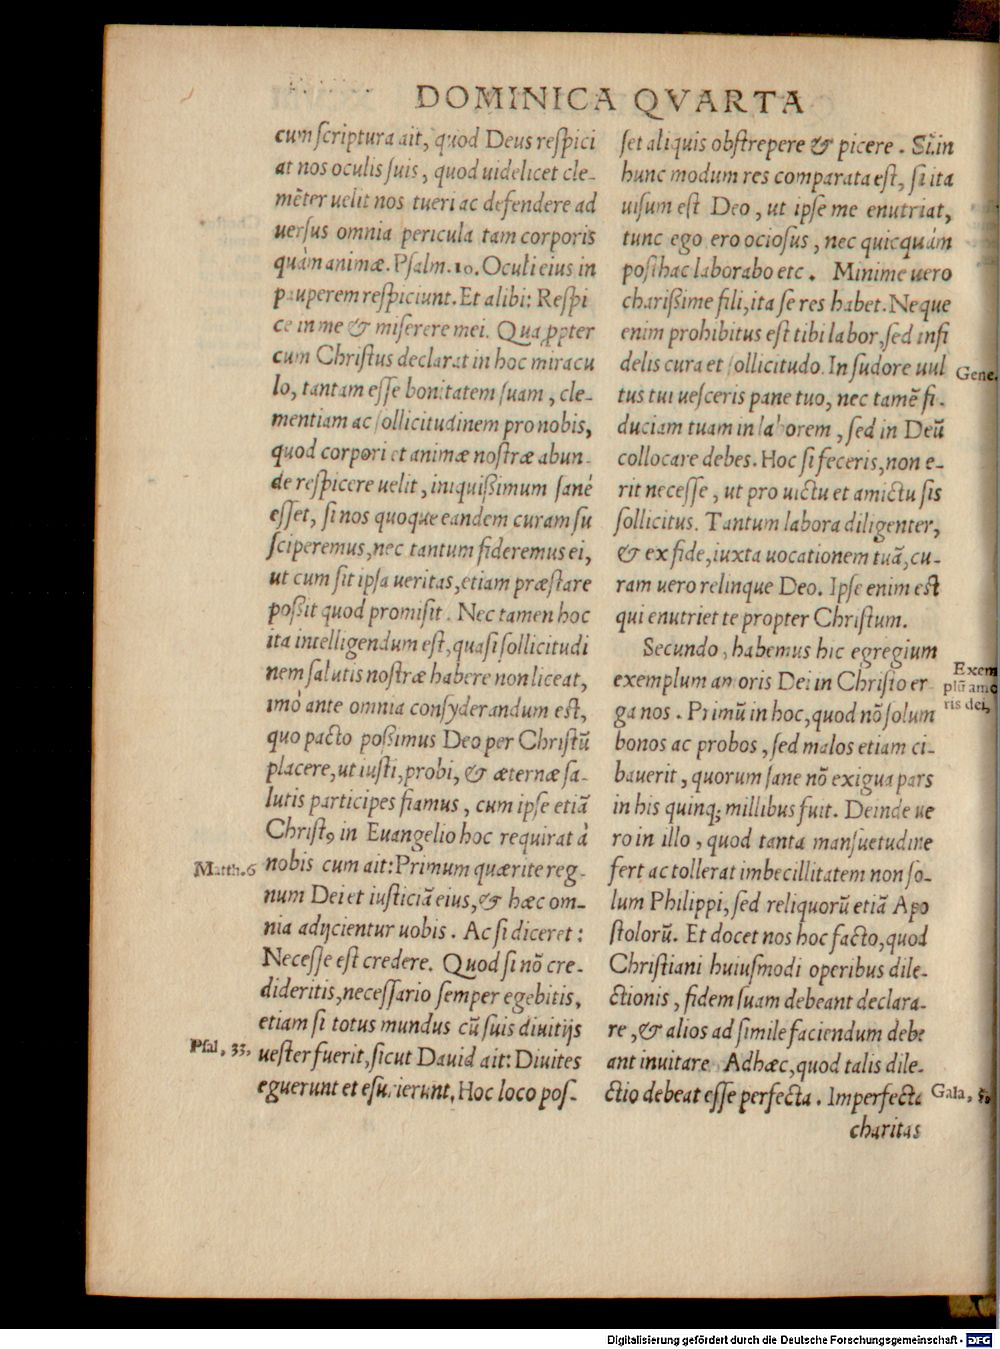 DOMINICA QVARTA
cum ſcriptura ait, quod Deus reſpici
at nos oculis ſuis, quod uidelicet cle-
mēter uelit nos tueri ac defendere ad
uerſus omnia pericula tam corporis
quàm animæ. Pſalm. 10. Oculi eius in
pauperem reſpiciunt. Et alibi: Reſpi
ce in me & miſerere mei. Qua ꝓpter
cum Chriſtus declarat in hoc miracu
lo, tantam eſſe bonitatem ſuam, cle-
mentiam ac ſollicitudinem pro nobis,
quod corpori et animæ noſtræ abun-
de reſpicere uelit, iniquißimum ſanè
eſſet, ſi nos quoque eandem curam ſu
ſciperemus, nec tantum fideremus ei,
ut cum ſit ipſa ueritas, etiam præſtare
poßit quod promiſit. Nec tamen hoc
ita intelligendum eſt, quaſi ſollicitudi
nem ſalutis noſtræ habere non liceat,
imò ante omnia conſyderandum eſt,
quo pacto poßimus Deo per Chriſtū
placere, ut iuſti, probi, & æternæ ſa-
lutis participes fiamus, cum ipſe etiā
Chriſtꝰ in Euangelio hoc requirat à
Matth. 6
nobis cum ait: Primum quærite reg-
num Dei et iuſticiā eius, & hæc om-
nia adijcientur uobis. Ac ſi diceret:
Neceſſe eſt credere. Quod ſi nō cre-
dideritis, neceſſario ſemper egebitis,
etiam ſi totus mundus cū ſuis diuitijs
Pſal. 33.
ueſter fuerit, ſicut Dauid ait: Diuites
eguerunt et eſurierunt. Hoc loco poſ-
ſet aliquis obſtrepere & dicere. Si in
hunc modum res comparata eſt, ſi ita
uiſum eſt Deo, ut ipſe me enutriat,
tunc ego ero ocioſus, nec quicquàm
poſthac laborabo etc. Minime uero
charißime fili, ita ſe res habet. Neque
enim prohibitus eſt tibi labor, ſed infi
delis cura et ſollicitudo. In ſudore uul
Gene.
tus tui ueſceris pane tuo, nec tamē fi-
duciam tuam in laborem, ſed in Deū
collocare debes. Hoc ſi feceris, non e-
rit neceſſe, ut pro uictu et amictu ſis
ſollicitus. Tantum labora diligenter,
& ex fide, iuxta uocationem tuā, cu-
ram uero relinque Deo. Ipſe enim eſt
qui enutriet te propter Chriſtum.
Secundo, habemus hic egregium
Exem
exemplum amoris Dei in Chriſto er
plū amo
ris dei,
ga nos. Primū in hoc, quod nō ſolum
bonos ac probos, ſed malos etiam ci-
bauerit, quorum ſane nō exigua pars
in his quinq; millibus fuit. Deinde ue
ro in illo, quod tanta manſuetudine
fert ac tollerat imbecillitatem non ſo-
lum Philippi, ſed reliquorū etiā Apo
ſtolorū. Et docet nos hoc facto, quod
Chriſtiani huiuſmodi operibus dile-
ctionis, fidem ſuam debeant declara-
re, & alios ad ſimile faciendum debe
ant inuitare Adhæc, quod talis dile-
ctio debeat eſſe perfecta. Imperfecta
Gala, 5.
charitas
Digitalisierung gefördert durch die Deutsche Forschungsgemeinschaft - DFG